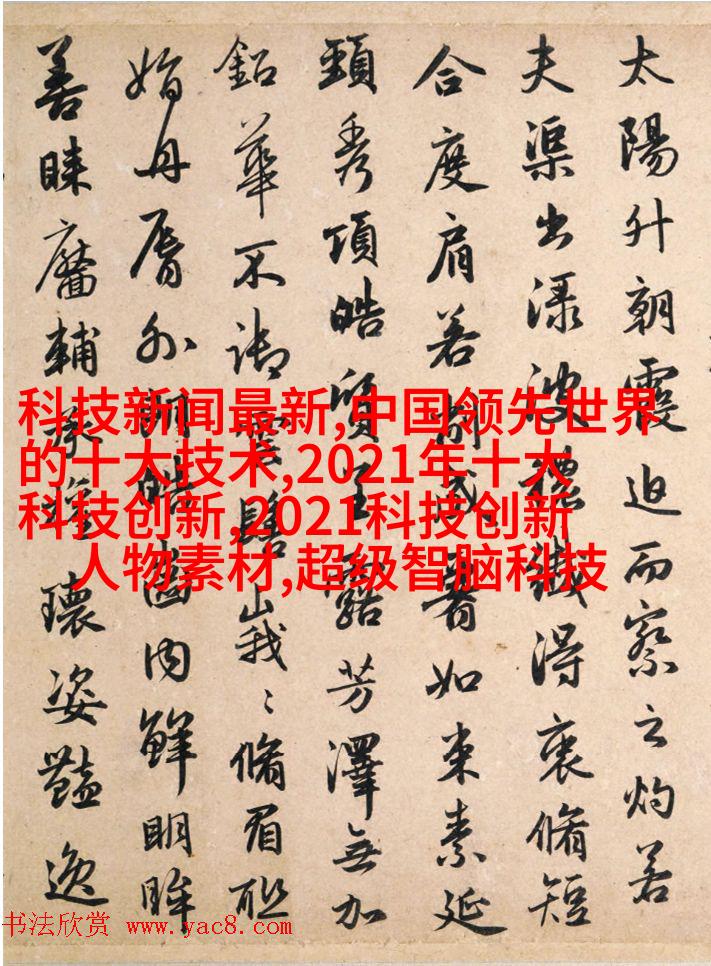 太陽升朝霞迫而察之灼若
夫渠出渌波穠纖得衷脩短
合度肩若削成如束素延
頸秀項皓質呈露芳澤無加
鉛華不御雲髻峩〻脩眉聯
娟丹脣外朗皓齒内鮮明眸
善睞靨輔承權瓌姿豔逸
科技新闻最新,中国领先世界
的十大技术,2021年十大
科技创新,2021科技创新
人物素材,超级智脑科技
书法欣赏 www.yac8.com